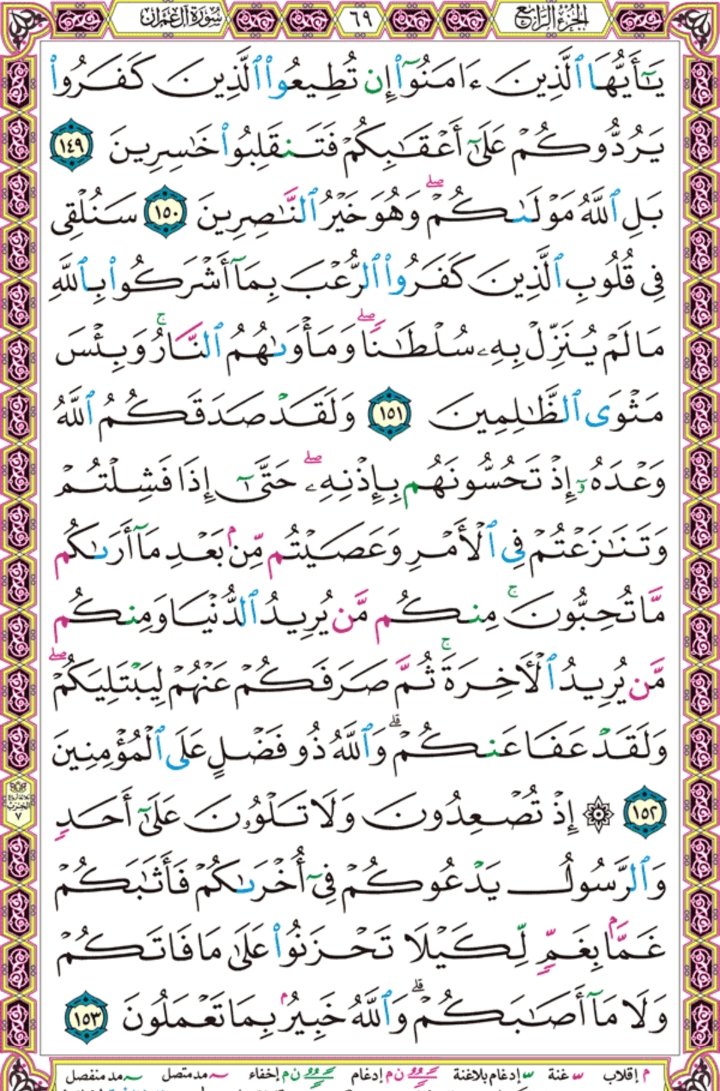 الجزء الرابع
٦٩
سورة آل عمران
يَـٰٓأَيُّهَا ٱلَّذِينَ ءَامَنُوٓا۟ إِن تُطِيعُوا۟ ٱلَّذِينَ كَفَرُوا۟
يَرُدُّوكُمْ عَلَىٰٓ أَعْقَـٰبِكُمْ فَتَنقَلِبُوا۟ خَـٰسِرِينَ ١٤٩
بَلِ ٱللَّهُ مَوْلَىٰكُمْ ۖ وَهُوَ خَيْرُ ٱلنَّـٰصِرِينَ ١٥٠ سَنُلْقِى
فِى قُلُوبِ ٱلَّذِينَ كَفَرُوا۟ ٱلرُّعْبَ بِمَآ أَشْرَكُوا۟ بِٱللَّهِ
مَا لَمْ يُنَزِّلْ بِهِۦ سُلْطَـٰنًا ۖ وَمَأْوَىٰهُمُ ٱلنَّارُ ۚ وَبِئْسَ
مَثْوَى ٱلظَّـٰلِمِينَ ١٥١ وَلَقَدْ صَدَقَكُمُ ٱللَّهُ
وَعْدَهُۥٓ إِذْ تَحُسُّونَهُم بِإِذْنِهِۦ ۖ حَتَّىٰٓ إِذَا فَشِلْتُمْ
وَتَنَـٰزَعْتُمْ فِى ٱلْأَمْرِ وَعَصَيْتُم مِّنۢ بَعْدِ مَآ أَرَىٰكُم
مَّا تُحِبُّونَ ۚ مِنكُم مَّن يُرِيدُ ٱلدُّنْيَا وَمِنكُم
مَّن يُرِيدُ ٱلْـَٔاخِرَةَ ۚ ثُمَّ صَرَفَكُمْ عَنْهُمْ لِيَبْتَلِيَكُمْ ۖ
وَلَقَدْ عَفَا عَنكُمْ ۗ وَٱللَّهُ ذُو فَضْلٍ عَلَى ٱلْمُؤْمِنِينَ
١٥٢ ۞ إِذْ تُصْعِدُونَ وَلَا تَلْوُۥنَ عَلَىٰٓ أَحَدٍ
وَٱلرَّسُولُ يَدْعُوكُمْ فِىٓ أُخْرَىٰكُمْ فَأَثَـٰبَكُمْ
غَمًّۢا بِغَمٍّ لِّكَيْلَا تَحْزَنُوا۟ عَلَىٰ مَا فَاتَكُمْ
وَلَا مَآ أَصَـٰبَكُمْ ۗ وَٱللَّهُ خَبِيرٌۢ بِمَا تَعْمَلُونَ ١٥٣
م إقلاب غنة إدغام بلاغنة ن م إدغام ن م إخفاء مد متصل مد منفصل